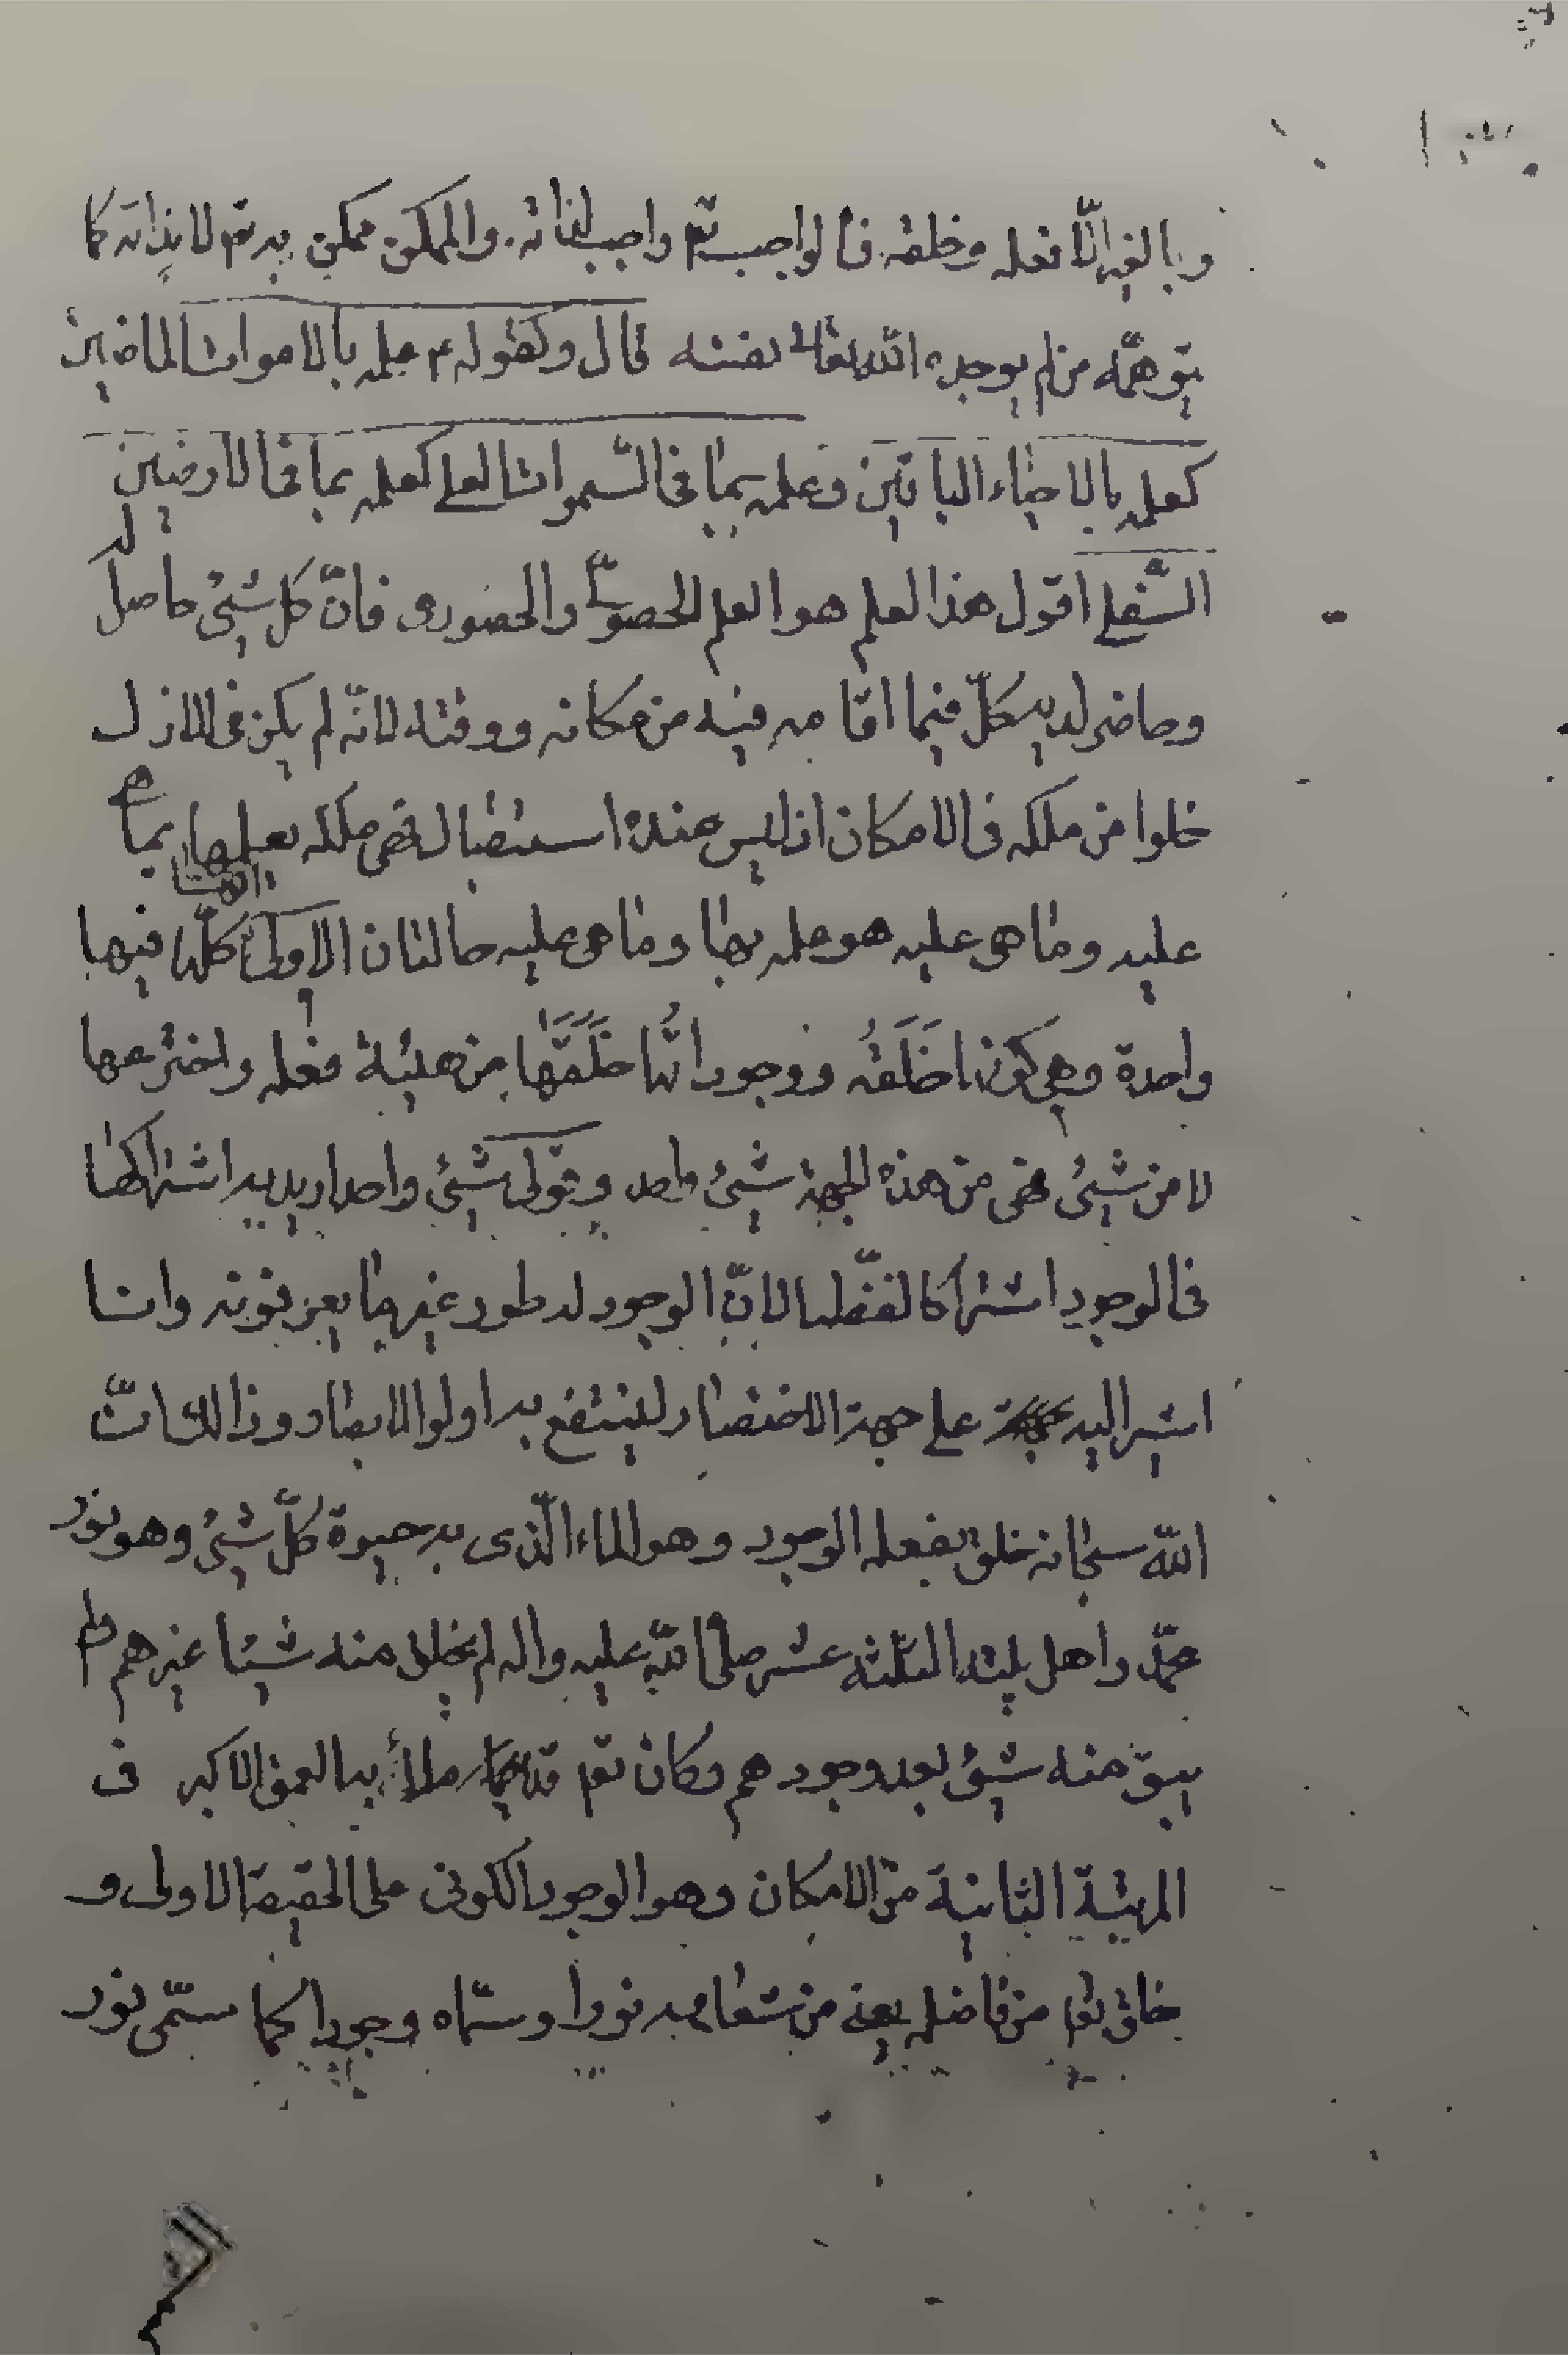 وبالغير انّا نعله وخلقه فالواجب تع واجب لذاته والممكن ممكن به تع لا بذاته كما
يتوهمّه من لم يوحده الله تعالى نفسه قال وكقوله ع علمه بالاموات الماضين
كعلمه بالاحياء الباقين وعلمه بما فى السّموات العلى كعلمه بما فى الارضين
السّفلى اقول هذا العلم هو العلم الحصولّى والحضورى فانّ كل شيئ حاصل له
وحاضر لديه كلّ فيما اقامه فيه من مكانه ووقته لانّه لم يكن فى الازل
خلوا من ملكه فى الامكان اذ ليس عنده استقبال فهى ملكه يعلمها بما هى
عليه وما هى عليه هو علمه بها وما هى عليه حالتان الاولى الاشياء كلّها فيها
واحدة وهى كونها خَلَقَهُ ووجود انّها خَلَقَها من هيئة فعله واخترعها
لا من شيئ فهى من هذه الجهة شيئ واحد وقولى شيئ واحد اريد به اشتراكها
فى الوجود اشتراكا لفظيا لانّ الوجود له طور غير ما يعرفونه وانا
اشير اليه على جهة الاختصار لينتفع به اولوا الابصار وذالك انّ
الله سبحانه خلق بفعله الوجود وهو الماء الّذى به حيوة كلّ شيئ وهو نور
محمّد واهل بيته الثلثة عشر صلى الله عليه واله لم يخلق منه شيئا غيرهم ولم
يبق منه شيئ بعد وجودهم وكان تع قد ملأ به العمق الاكبر فى
المرتبة الثانية من الامكان وهو الوجود الكونى على الحقيقة الاولى و
خلق تعا من فاضله يعنى من شعاعه نورا وسمّاه وجودا كما سمّى نور